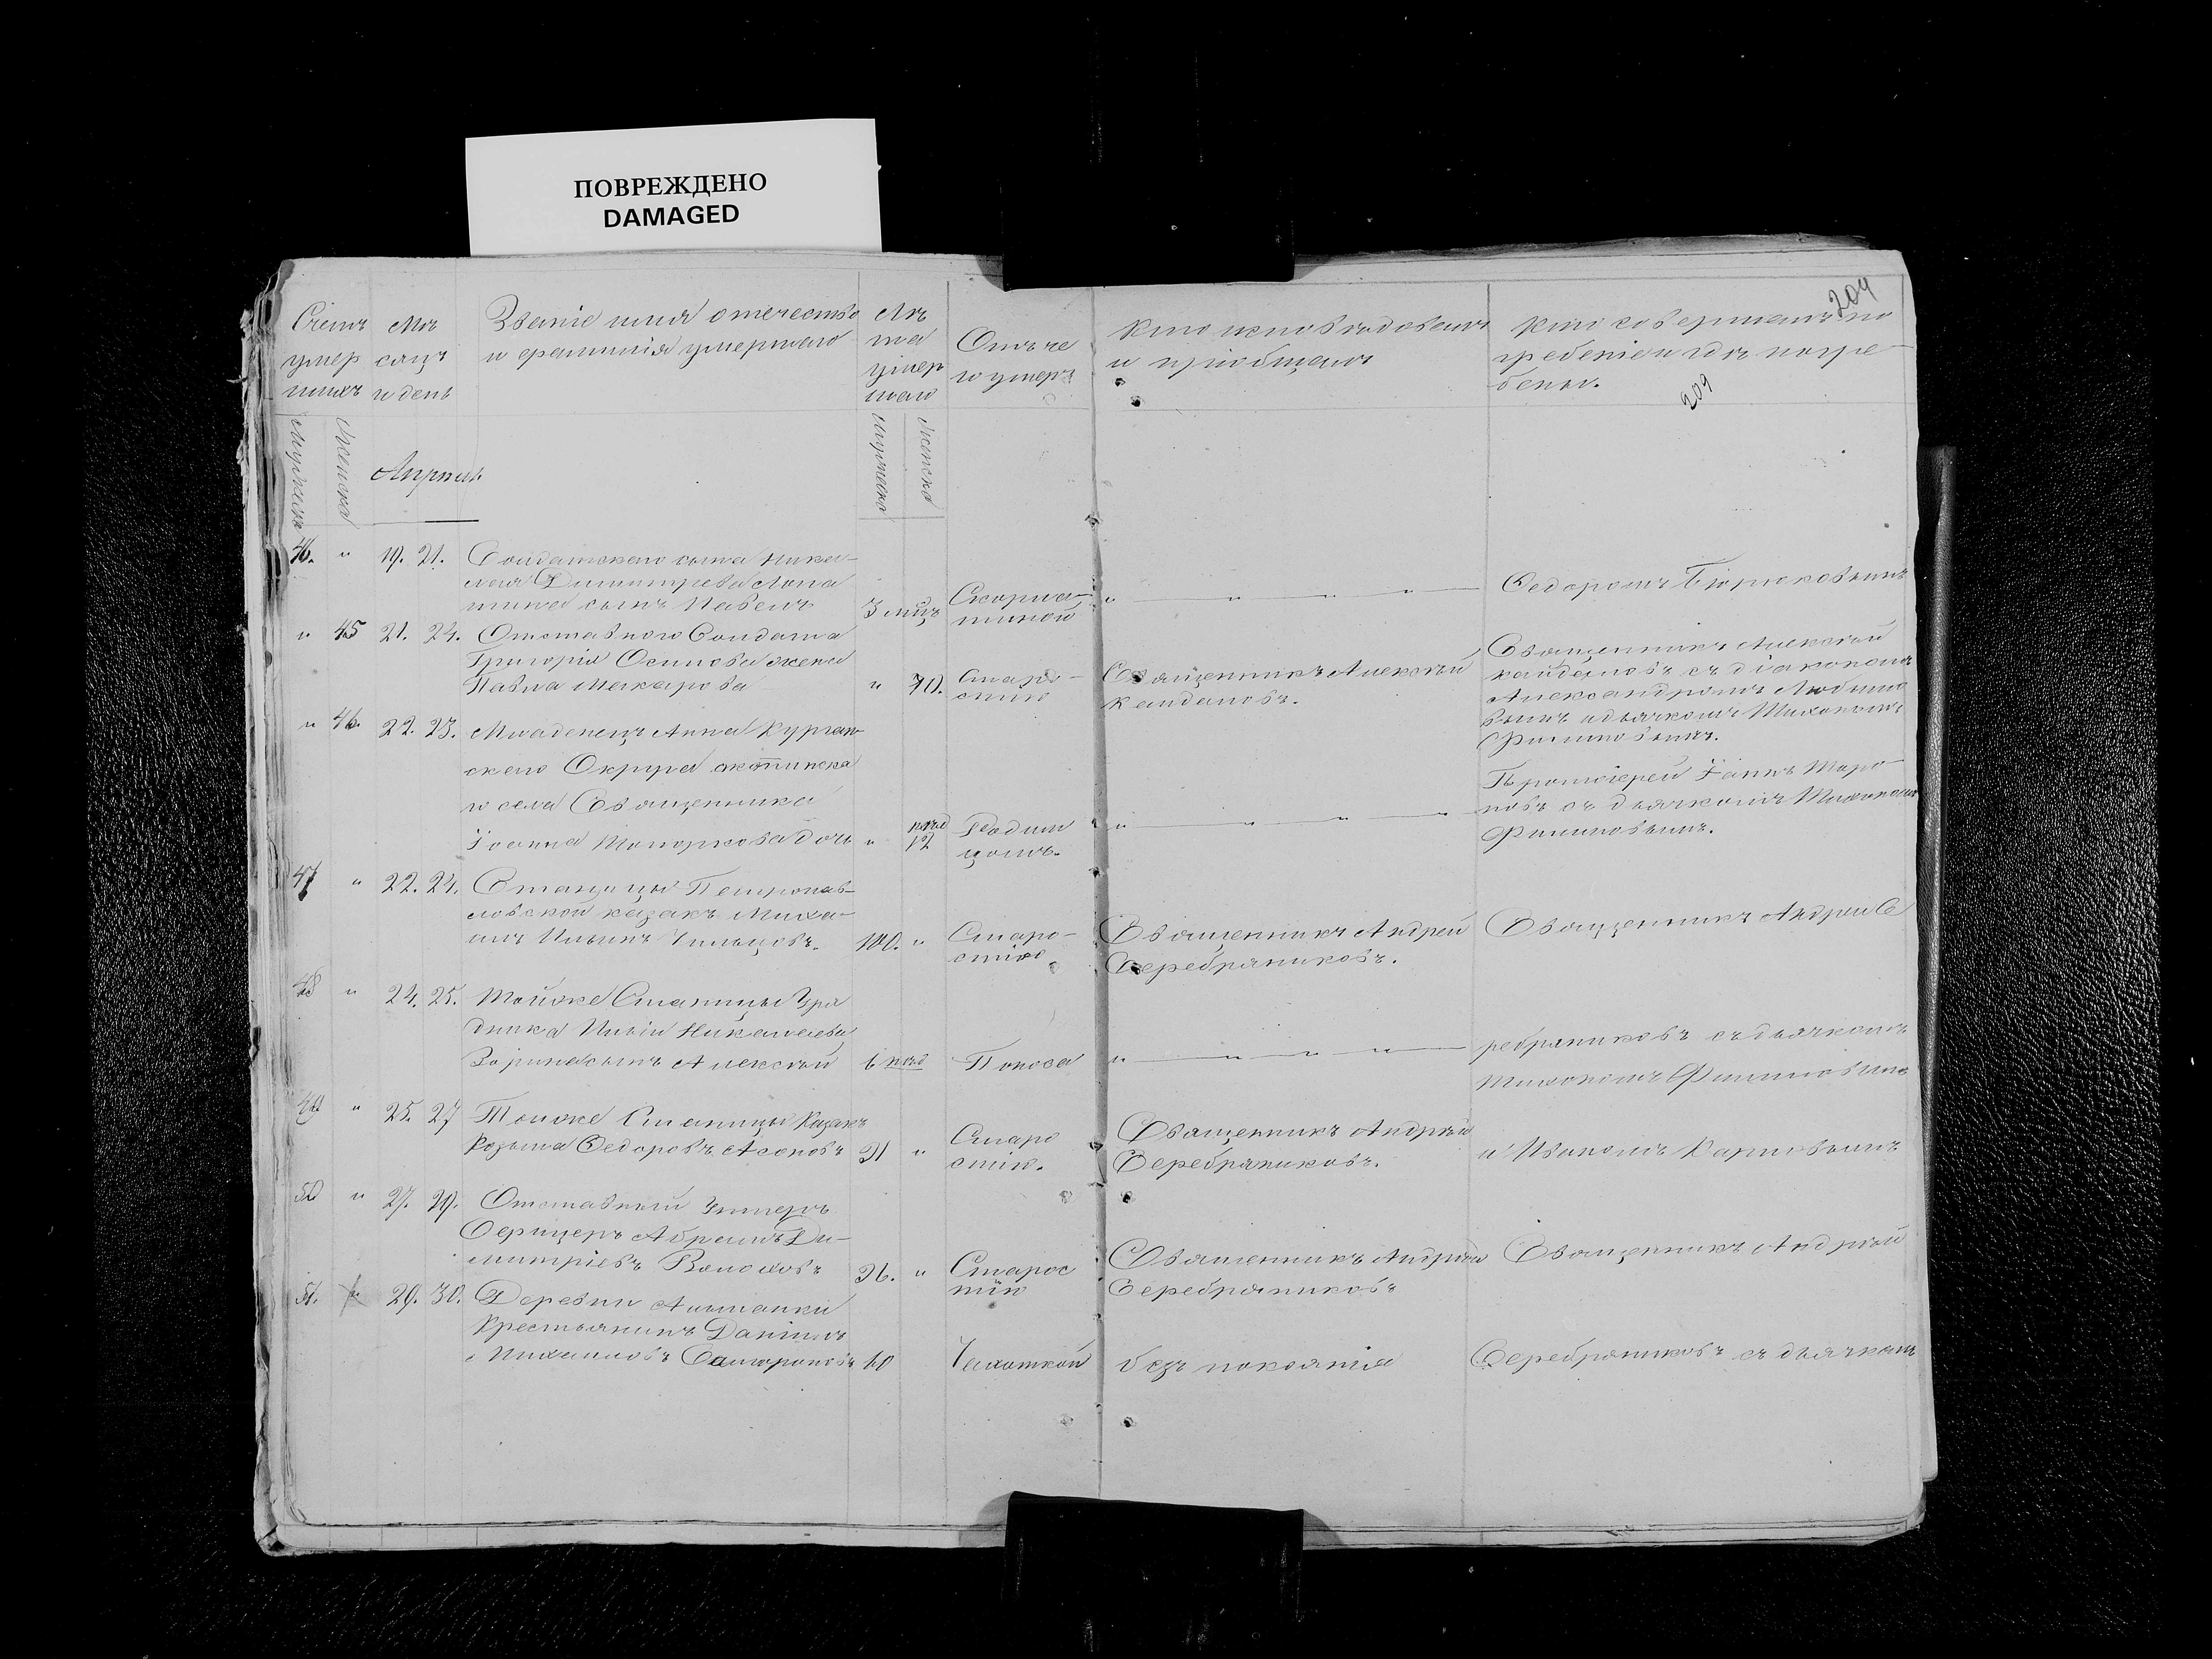 ПОВРЕЖДЕНО
DAMAGED
204
209
Счетъ умер шихъ
Мѣ сяцъ и день
Званіе имя отечество
и фамилія умершаго
Лѣ та умер шаго
Отъ че го умеръ
Кто исповѣдовалъ
и пріобщалъ
Кто совершалъ по
гребеніе и гдѣ погре
бены.
Мужеска
Женска
Апрѣль
Мужеска
Женска
46. " 19. 21. Солдатскаго сына Нико-
лая Димитрева Лопа
тина сынъ Павелъ 3 мцъ Скорла-
тиной " " " "
Федоромъ Бирюковымъ
" 45 21. 24. Отставного Солдата
Григорія Осипова жена
Павла Макарова " 70. Старо-
стію
Священникъ Алексѣй
Кандаловъ.
Священникъ Алексѣй
Кайдаловъ съ діакономъ
Александромъ Любимо
вымъ и дьячкомъ Тихономъ
Филиповымъ.
" 46. 22. 23. Младенецъ Анна Курган-
скаго Округа
го села Священника
Іоанна Топоркова дочь " нѣд 12 Родим
цомъ. " " " "
Протоіерей Іоаннъ
новъ съ дьячкомъ Тихономъ
Филиповымъ.
47 " 22. 24. Станицы Петропав-
ловской казакъ Миха-
илъ Ильинъ 100. " Старо-
стію
Священникъ Андрей
Серебряниковъ.
Священникъ Андрей Се
48 " 24. 25. Тойже Станицы Уря
дника Ильи Николаева
Зорина сынъ Алексѣй 6 нѣд Поноса " " " "
ребряниковъ съ дьячкомъ
Тихономъ Филиповымъ
49 " 25. 27 Тойже Станицы Казакъ
Козьма Федоровъ 91 " Старо
стію.
Священникъ Андрѣй
Серебряниковъ.
и Иваномъ Карповымъ
50 " 27. 29. Отставный Унтеръ
Офицеръ Абрамъ Ди-
митріевъ Волоховъ 96. " Старос
тію
Священникъ Андрѣй
Серебряниковъ
Священникъ Андрѣй
51. " 29. 30. Деревни
Крестьянинъ Даніилъ
Михаиловъ 60 Чахоткой
безъ покоянія
Серебряниковъ съ дьячкомъ